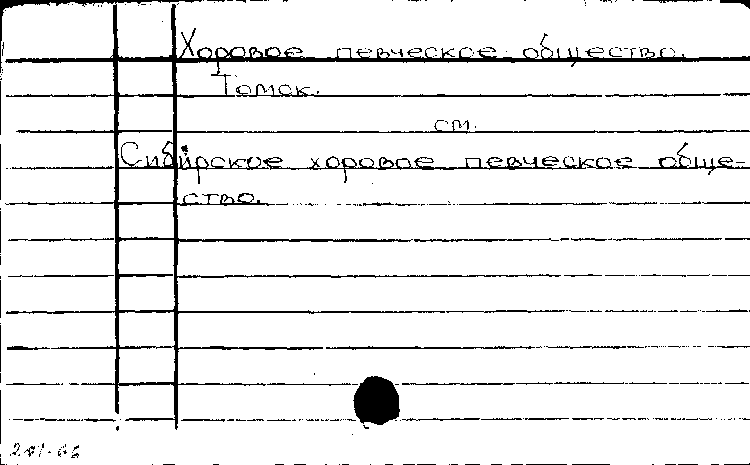 Хоровое певческое общество.
Томск.
см.
Сибирское хоровое певческое обще-
ство.